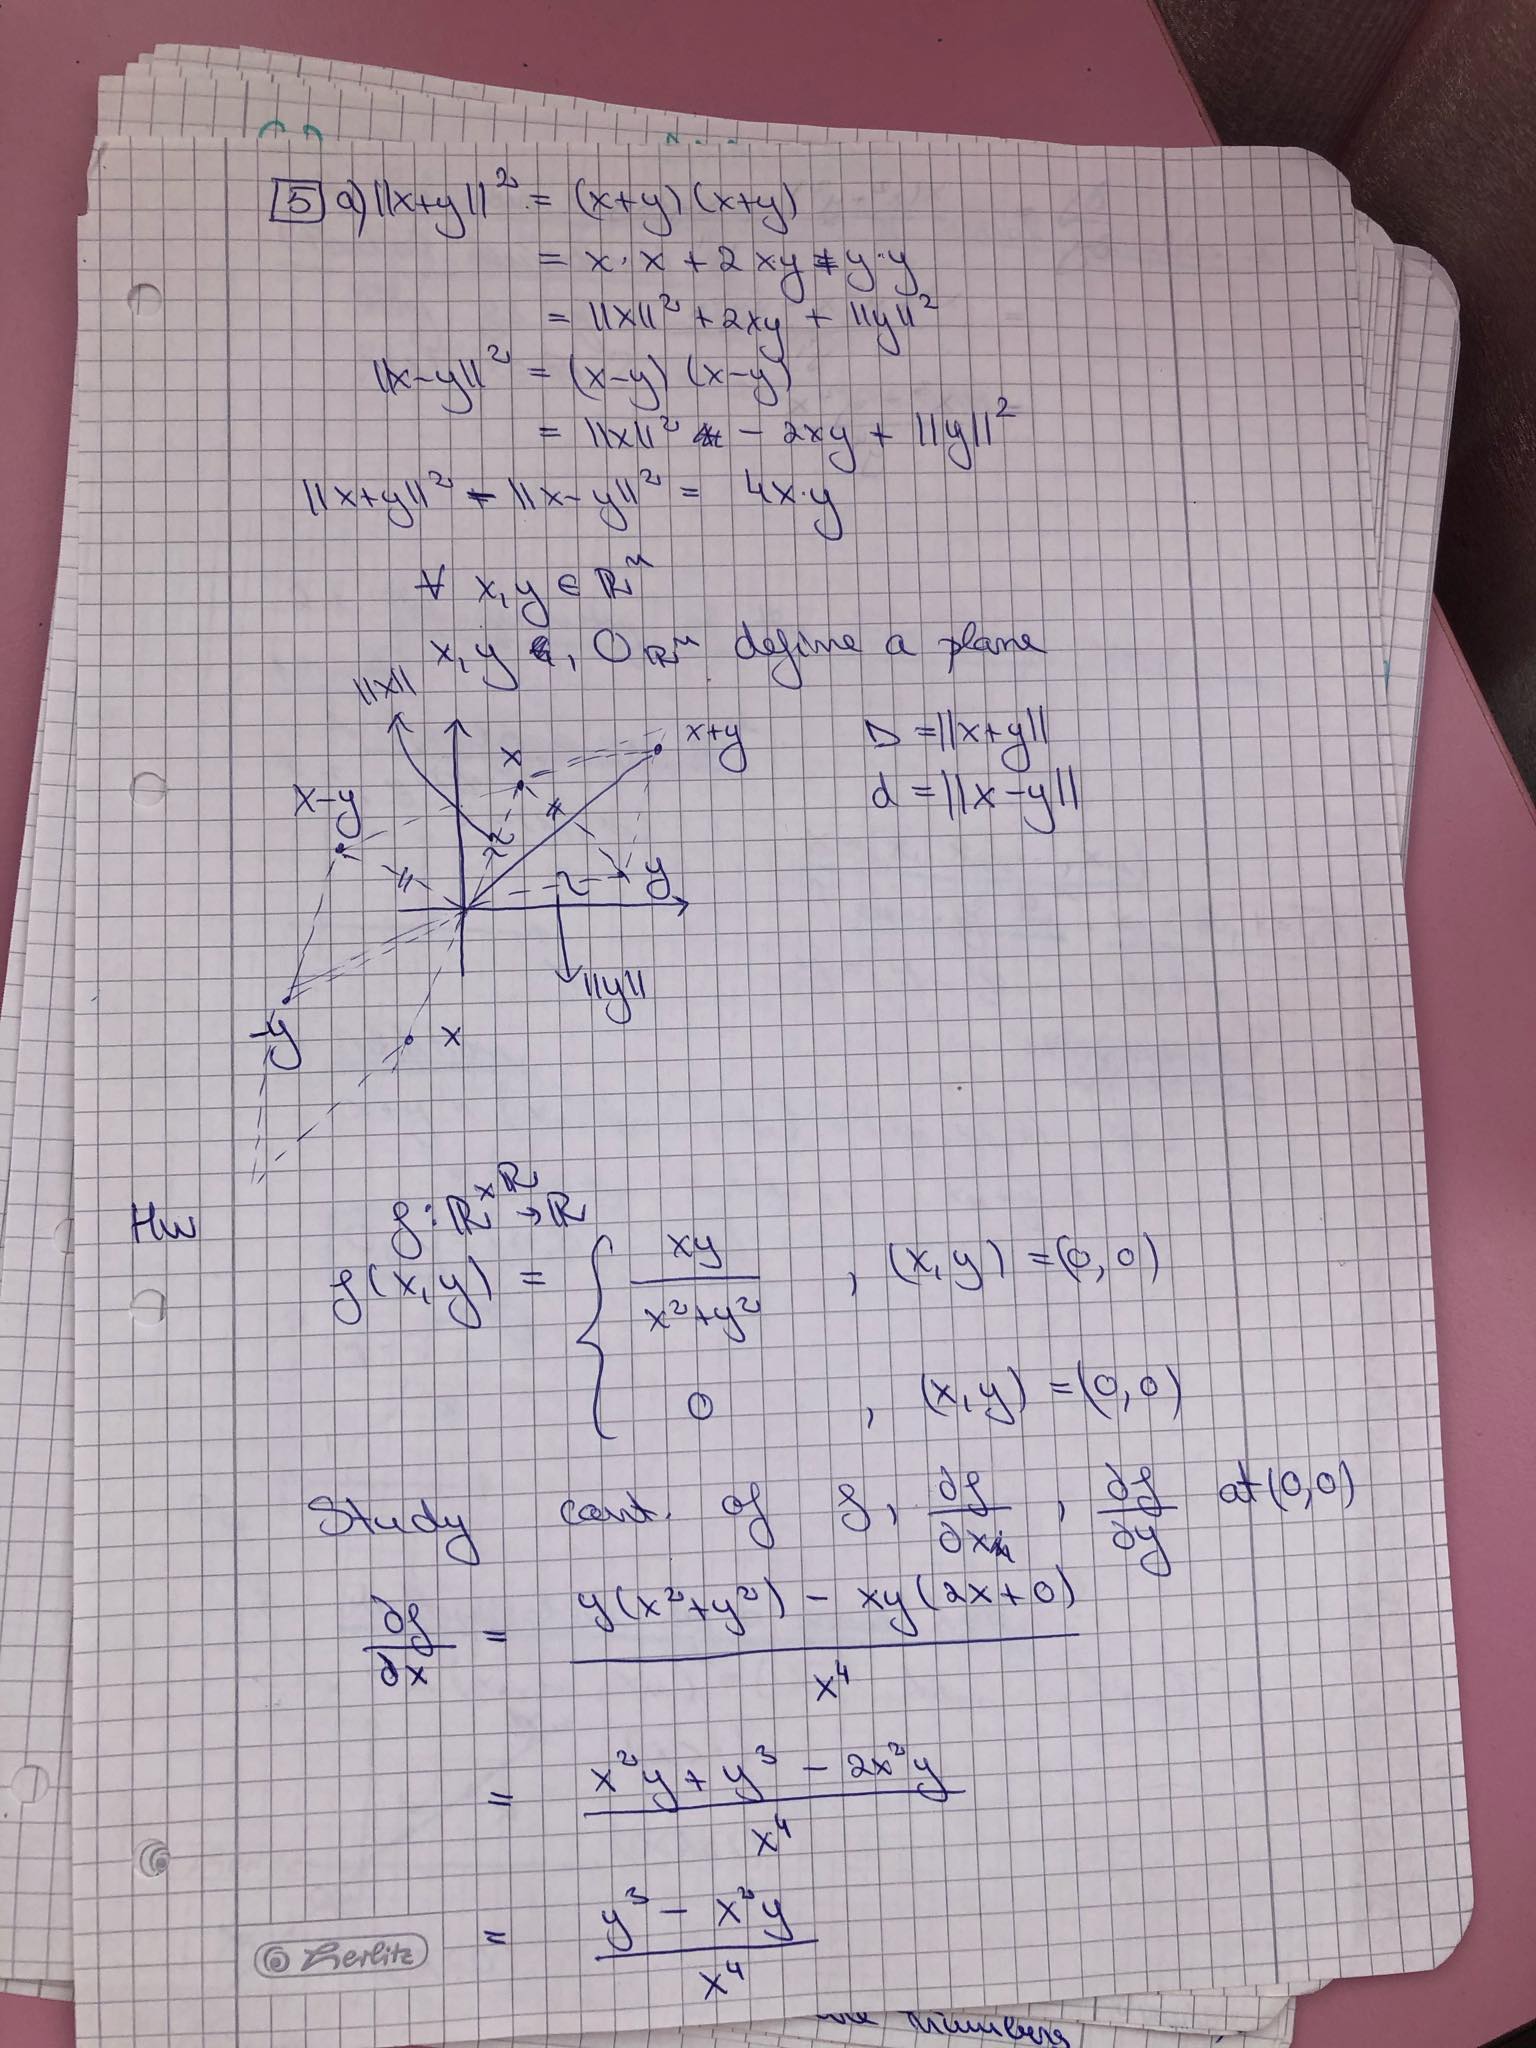 5 a) ||x+y||² = (x+y)(x+y)
= x·x + 2x·y + y·y
= ||x||² + 2xy + ||y||²
||x-y||² = (x-y)(x-y)
= ||x||² - 2xy + ||y||²
||x+y||² - ||x-y||² = 4x·y
∀ x,y ∈ ℝⁿ
x,y, 0 ℝⁿ define a plane
||x||
x+y
D = ||x+y||
x
x-y
d = ||x-y||
y
||y||
-y
x
Hw
f: ℝ×ℝ → ℝ
f(x,y) = { xy / x²+y² , (x,y) = (0,0)
0 , (x,y) = (0,0)
Study cont. of f, ∂f/∂x, ∂f/∂y at (0,0)
∂f/∂x = y(x²+y²) - xy(2x+0) / x⁴
= x²y + y³ - 2x²y / x⁴
= y³ - x²y / x⁴
Herlitz
numbers